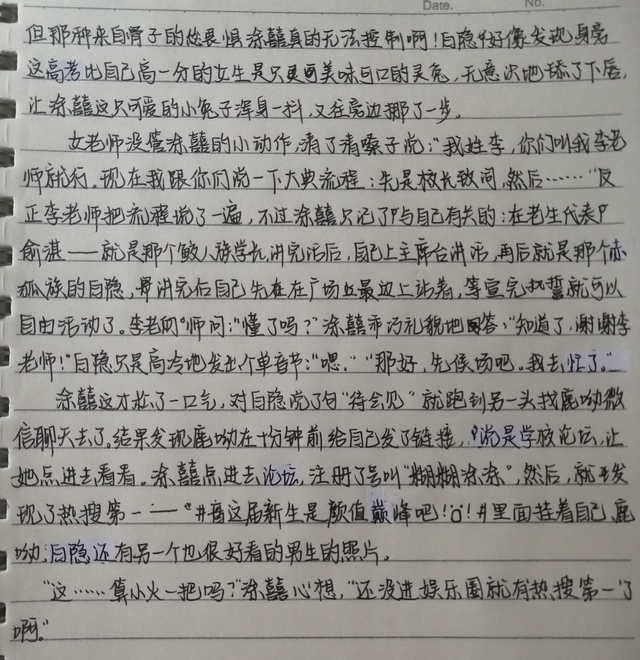 Date.
No.
但那种来自骨子的惧涂囍真的无法控制啊！白隐好像发现身旁
这高考比自己高一分的女生是只更可美味可口的灵兔，无意识地舔了下唇，
让涂囍这只可爱的小兔子浑身一抖，又往旁边挪了一步。
女老师没管涂囍的小动作，清了清嗓子说：“我姓李，你们叫我李老
师就行。现在我跟你们说一下大典流程：先是校长致词，然后……”反
正李老师把流程说了一遍，不过涂囍只记了与自己有关的：在老生代表
俞湛——就是那个人族学长讲完话后，自己上主席台讲话，再后就是那个赤
狐族的白隐，讲完后自己先在在广场最边上站着，等宣完誓就可以
自由活动了。李老师问：“懂了吗？”涂囍乖巧礼貌地回答：“知道了，谢谢李
老师！”白隐只是高冷地发出个单音节：“嗯。”“那好，先候场吧。我去忙了。”
涂囍这才松了一口气，对白隐说了句“待会见”就跑到另一头找鹿呦微
信聊天去了。结果发现鹿呦在十分钟前给自己发了链接，说是学校论坛，让
她点进去看看。涂囍点进去论坛，注册了号叫“糊糊涂涂”，然后，就发
现了热搜第一——“#这届新生是颜值巅峰吧！ö！#里面挂着自己、鹿
呦、白隐还有另一个也很好看的男生的照片。
“这……算小火一把吗？”涂囍心想，“还没进娱乐圈就有热搜第一了
啊。”